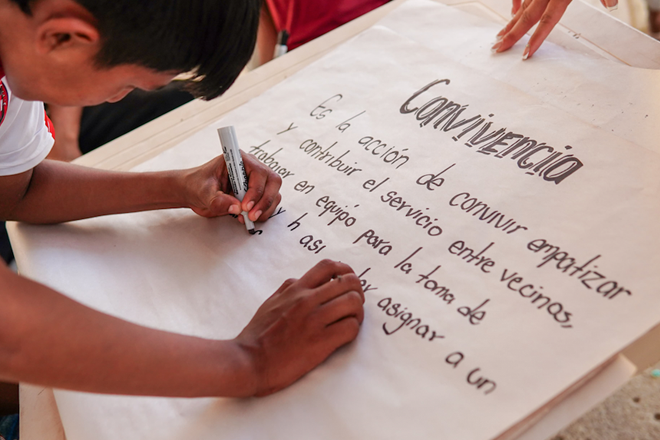 Convivencia
Es la acción de convivir empatizar
y contribuir el servicio entre vecinos,
trabajar en equipo para la toma de
y h así asignar a un
s